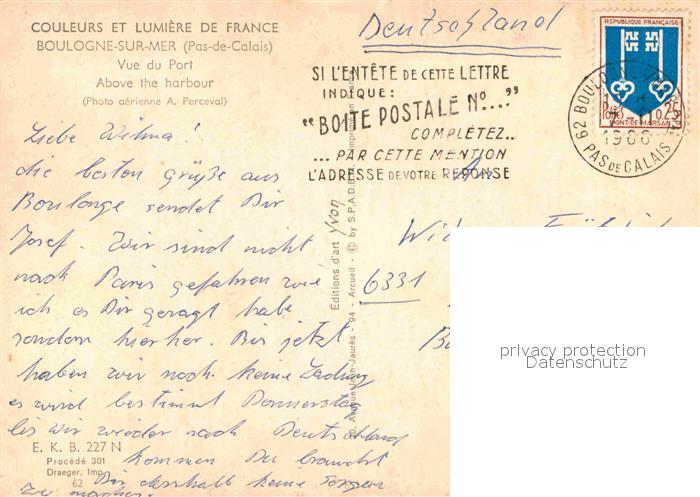 COULEURS ET LUMIÈRE DE FRANCE
BOULOGNE-SUR-MER (Pas-de-Calais)
Vue du Port
Above the harbour
(Photo aérienne A. Perceval)
Liebe Wilma!
die besten Grüße aus
Boulonge sendet Dir
Josef. Wir sind nicht
nach Paris gefahren wie
ich es Dir gesagt habe
sondern hierher. Bis jetzt
haben wir noch keine Ladung
es wird bestimmt Donnerstag
bis wir wieder nach Deutschland
kommen Du brauchst
Dir deshalb keine Sorgen
zu machen.
E. K. B. 227 N
Procédé 301
Draeger, Imp.
62
Editions d'art Yvon
© by S.P.A.D.E.M.
Avenue Jean-Jaurès - 94 - Arcueil -
Deutschland
SI L'ENTÊTE DE CETTE LETTRE
INDIQUE:
"BOITE POSTALE No...."
COMPLÉTEZ..
...PAR CETTE MENTION
L'ADRESSE DE VOTRE REPONSE
REPUBLIQUE FRANÇAISE
POSTES 0,25
MONT-DE-MARSAN
62 BOULOGNE
1966
PAS DE CALAIS
6331
privacy protection
Datenschutz